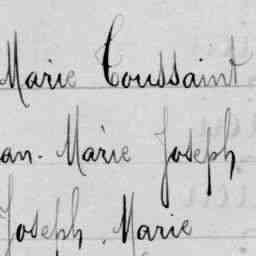 Marie Toussaint
an. Marie Joseph
Joseph Marie